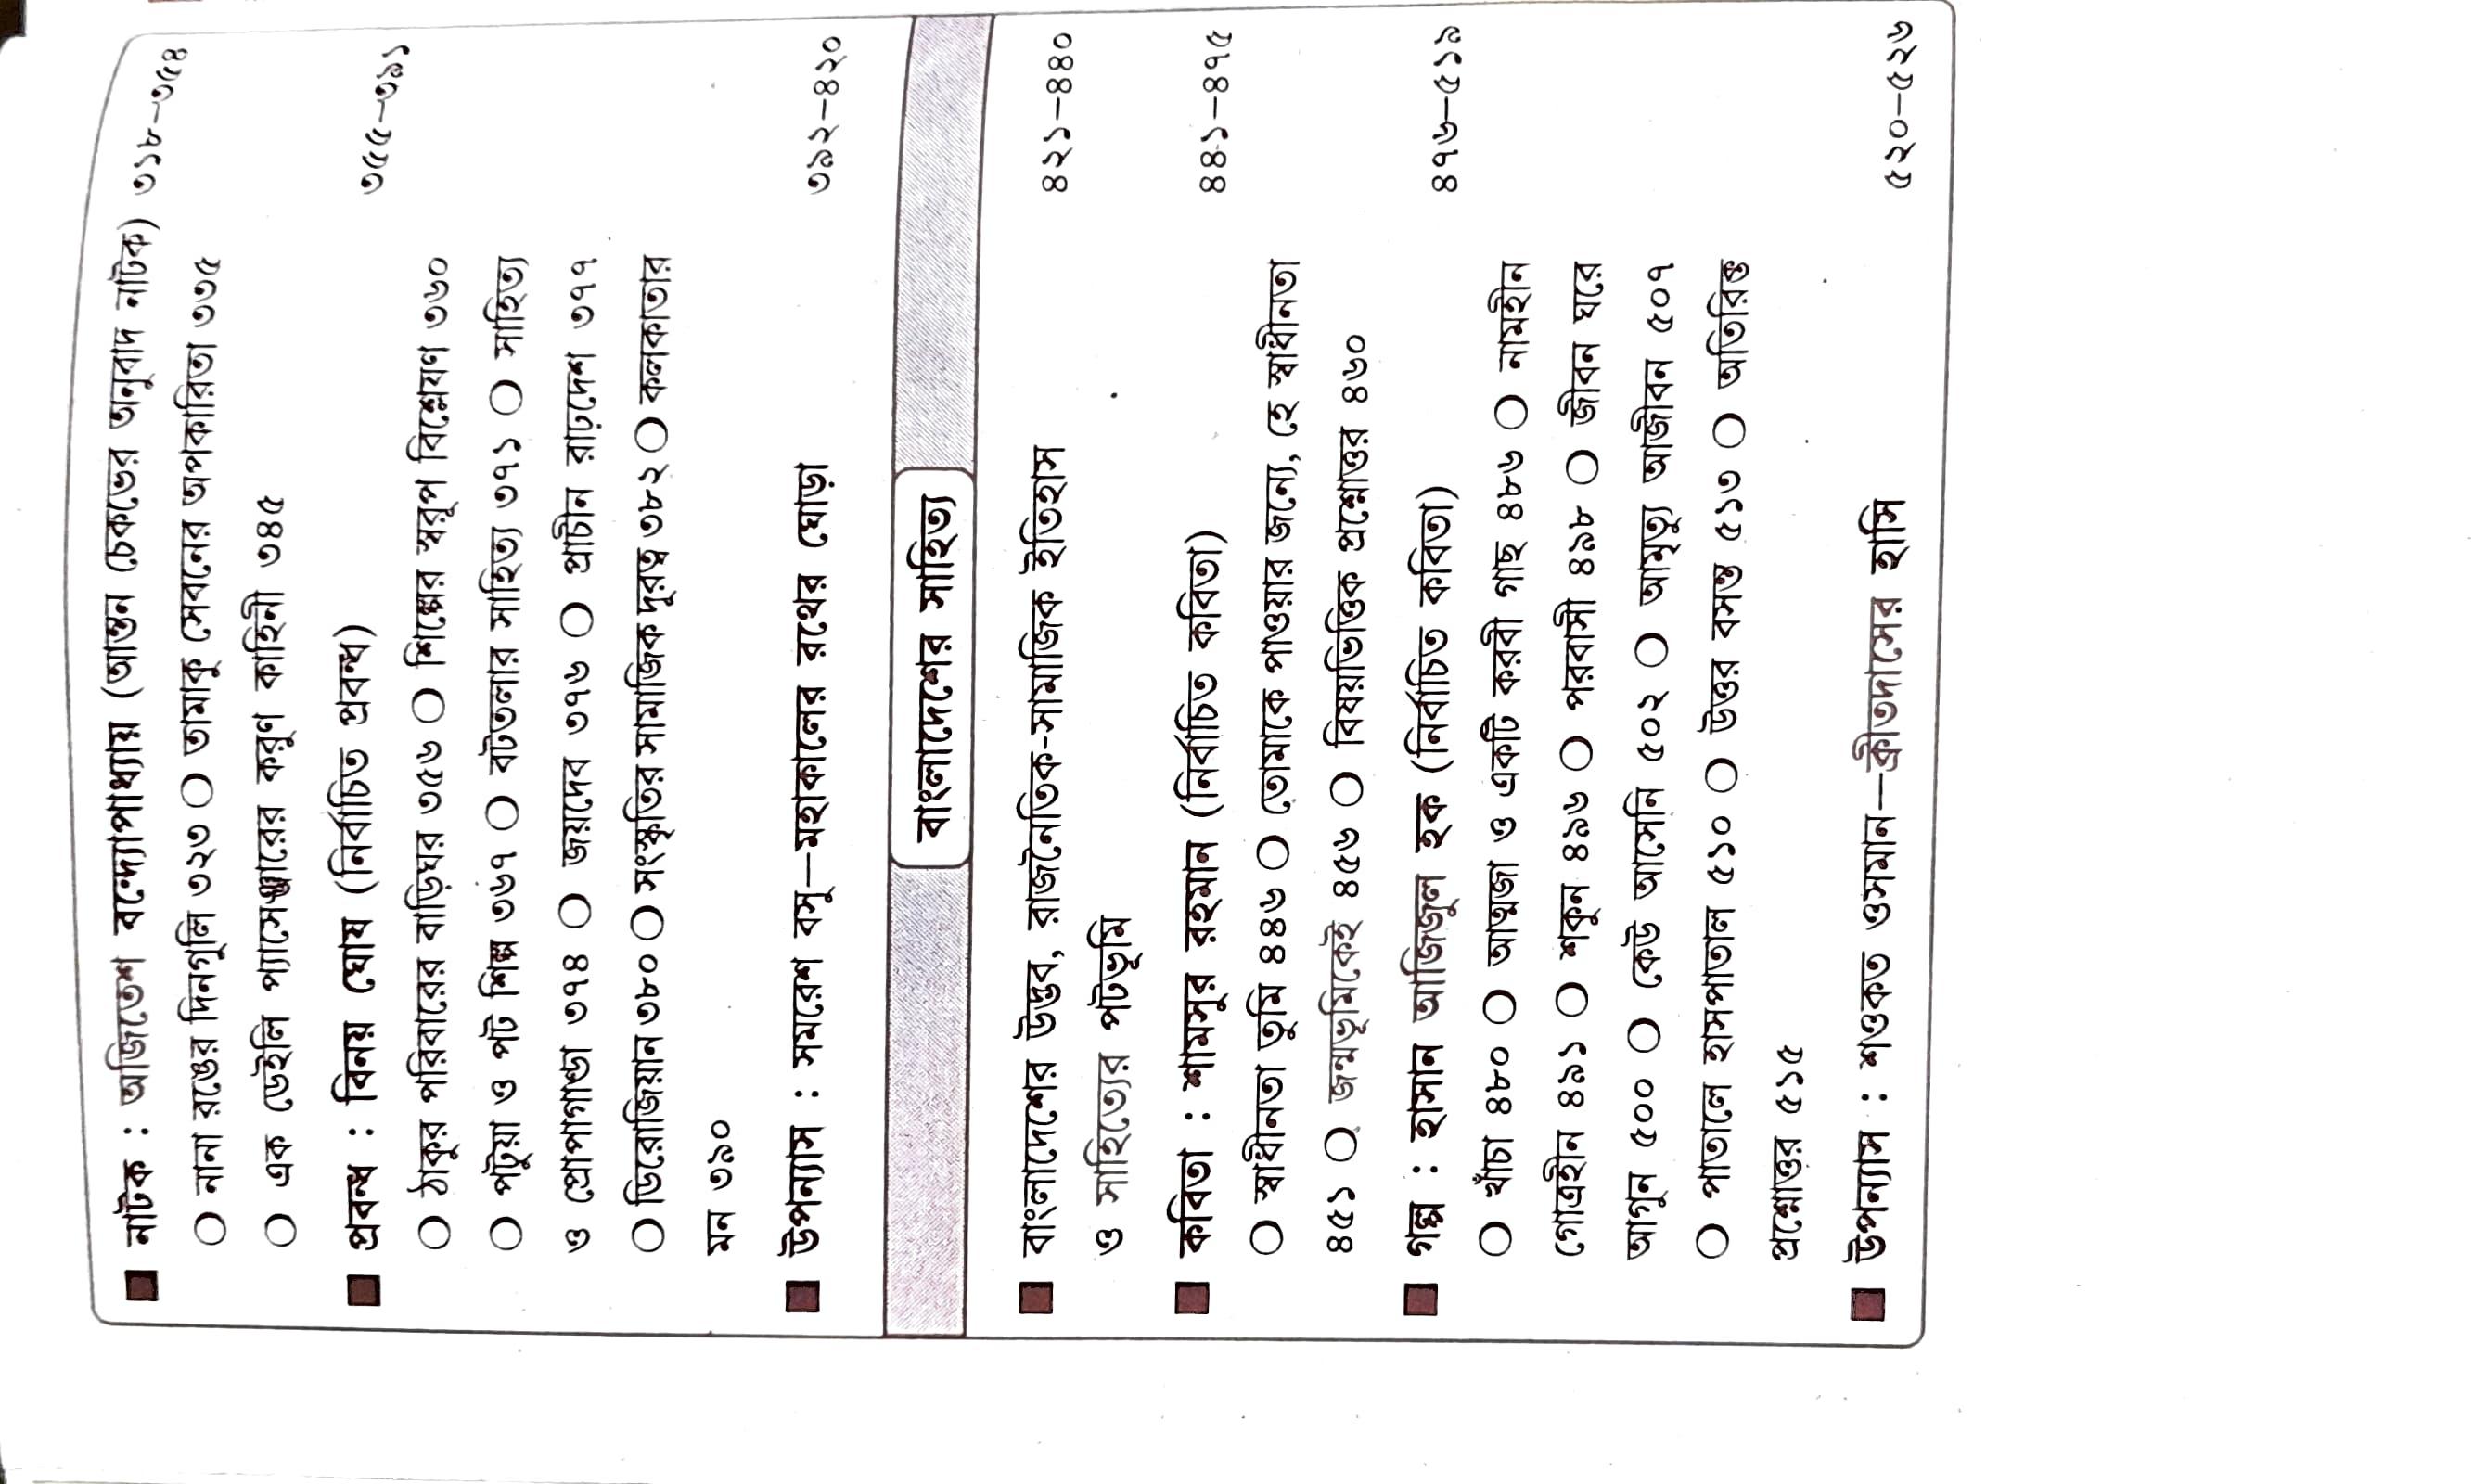 ■ নাটক : অজিতেশ বন্দ্যোপাধ্যায় (আন্তন চেকভের অনুবাদ নাটক) ৩১৮–৩৫৪
○ নানা রঙের দিনগুলি ৩২৩ ○ তামাকু সেবনের অপকারিতা ৩৩৫
○ এক ডেইলি প্যাসেঞ্জারের করুণ কাহিনী ৩৪৫
■ প্রবন্ধ : বিনয় ঘোষ (নির্বাচিত প্রবন্ধ) ৩৫৫–৩৯১
○ ঠাকুর পরিবারের বাড়িঘর ৩৫৬ ○ শিল্পের স্বরূপ বিশ্লেষণ ৩৬০
○ পটুয়া ও পট শিল্প ৩৬৭ ○ বটতলার সাহিত্য ৩৭১ ○ সাহিত্য
ও প্রোপাগান্ডা ৩৭৪ ○ জয়দেব ৩৭৬ ○ প্রাচীন রাঢ়দেশ ৩৭৭
○ ডিরোজিয়ান ৩৮০ ○ সংস্কৃতির সামাজিক দূরত্ব ৩৮২ ○ কলকাতার
মন ৩৯০
■ উপন্যাস : সমরেশ বসু—মহাকালের রথের ঘোড়া ৩৯২–৪২০
বাংলাদেশের সাহিত্য
■ বাংলাদেশের উদ্ভব, রাজনৈতিক-সামাজিক ইতিহাস ৪২১–৪৪০
ও সাহিত্যের পটভূমি
■ কবিতা : শামসুর রহমান (নির্বাচিত কবিতা) ৪৪১–৪৭৫
○ স্বাধীনতা তুমি ৪৪৬ ○ তোমাকে পাওয়ার জন্যে, হে স্বাধীনতা
৪৫১ ○ জন্মভূমিকেই ৪৫৬ ○ বিষয়ভিত্তিক প্রশ্নোত্তর ৪৬০
■ গল্প : হাসান আজিজুল হক (নির্বাচিত কবিতা) ৪৭৬–৫১৯
○ খাঁচা ৪৮০ ○ আত্মজা ও একটি করবী গাছ ৪৮৬ ○ নামহীন
গোত্রহীন ৪৯১ ○ শকুন ৪৯৬ ○ পরবাসী ৪৯৮ ○ জীবন ঘরে
আগুন ৫০০ ○ কেউ আসেনি ৫০২ ○ আমৃত্যু আজীবন ৫০৭
○ পাতালে হাসপাতাল ৫১০ ○ উত্তর বসন্ত ৫১৩ ○ অতিরিক্ত
প্রশ্নোত্তর ৫১৫
■ উপন্যাস : শওকত ওসমান—ক্রীতদাসের হাসি ৫২০–৫২৬